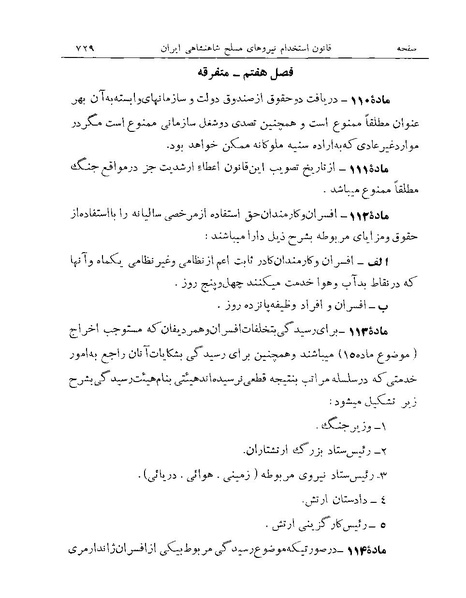 صفحه قانون استخدام نیروهای مسلح شاهنشاهی ایران ۷۲۹
فصل هفتم ـ متفرقه
ماده۱۱۰ ـ دریافت دوحقوق ازصندوق دولت و سازمانهای‌وابسته‌به‌آن بهر
عنوان مطلقاً ممنوع است و همچنین تصدی دوشغل سازمانی ممنوع است مگردر
مواردغیرعادی که‌به‌اراده سنیه ملوکانه ممکن خواهد بود.
ماده۱۱۱ ـ ازتاریخ تصویب این‌قانون اعطاء ارشدیت جز درمواقع جنگ
مطلقاً ممنوع میباشد .
ماده۱۱۲ ـ افسران وکارمندان‌حق استفاده ازمرخصی سالیانه را بااستفاده‌از
حقوق ومزایای مربوطه بشرح ذیل دارا میباشند :
الف ـ افسران وکارمندان‌کادر ثابت اعم‌ازنظامی وغیرنظامی یکماه وآنها
که درنقاط بدآب وهوا خدمت میکنند چهل‌وپنج روز .
ب ـ افسران و افراد وظیفه‌پانزده روز .
ماده۱۱۳ ـ برای‌رسیدگی‌بتخلفات‌افسران‌وهمردیفان که مستوجب اخراج
( موضوع ماده۱۵) میباشند وهمچنین برای رسیدگی بشکایات‌آنان راجع به‌امور
خدمتی که درسلسله مراتب بنتیجه قطعی‌نرسیده‌اندهیئتی بنام‌هیئت‌رسیدگی‌بشرح
زیر تشکیل میشود :
۱ـ وزیرجنگ .
۲ـ رئیس‌ستاد بزرگ ارتشتاران.
۳ـ رئیس‌ستاد نیروی مربوطه ( زمینی . هوائی . دریائی) .
٤ ـ دادستان ارتش.
٥ ـ رئیس‌کارگزینی ارتش .
ماده۱۱۴ ـ درصورتیکه‌موضوع‌رسیدگی مربوط‌بیکی ازافسران‌ژاندارمری